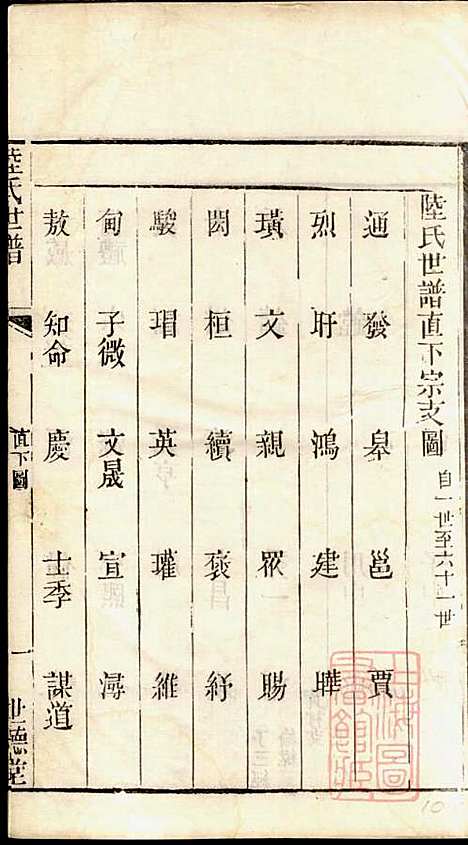 陸氏世譜直下宗支圖 自一世至六十一世
通 發 皋 邕 賈
烈 盱 鴻 建 曄
璜 文 親 眾 賜
閎 桓 續 褒 紆
駿 瑁 英 瓘 維
甸 子微 文晟 宣 潯
敖 知命 慶 士季 謀道
陸氏世譜 直下圖 一 世德堂
10